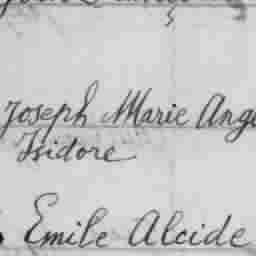 Joseph Marie Ang
Isidore
Emile Alcide